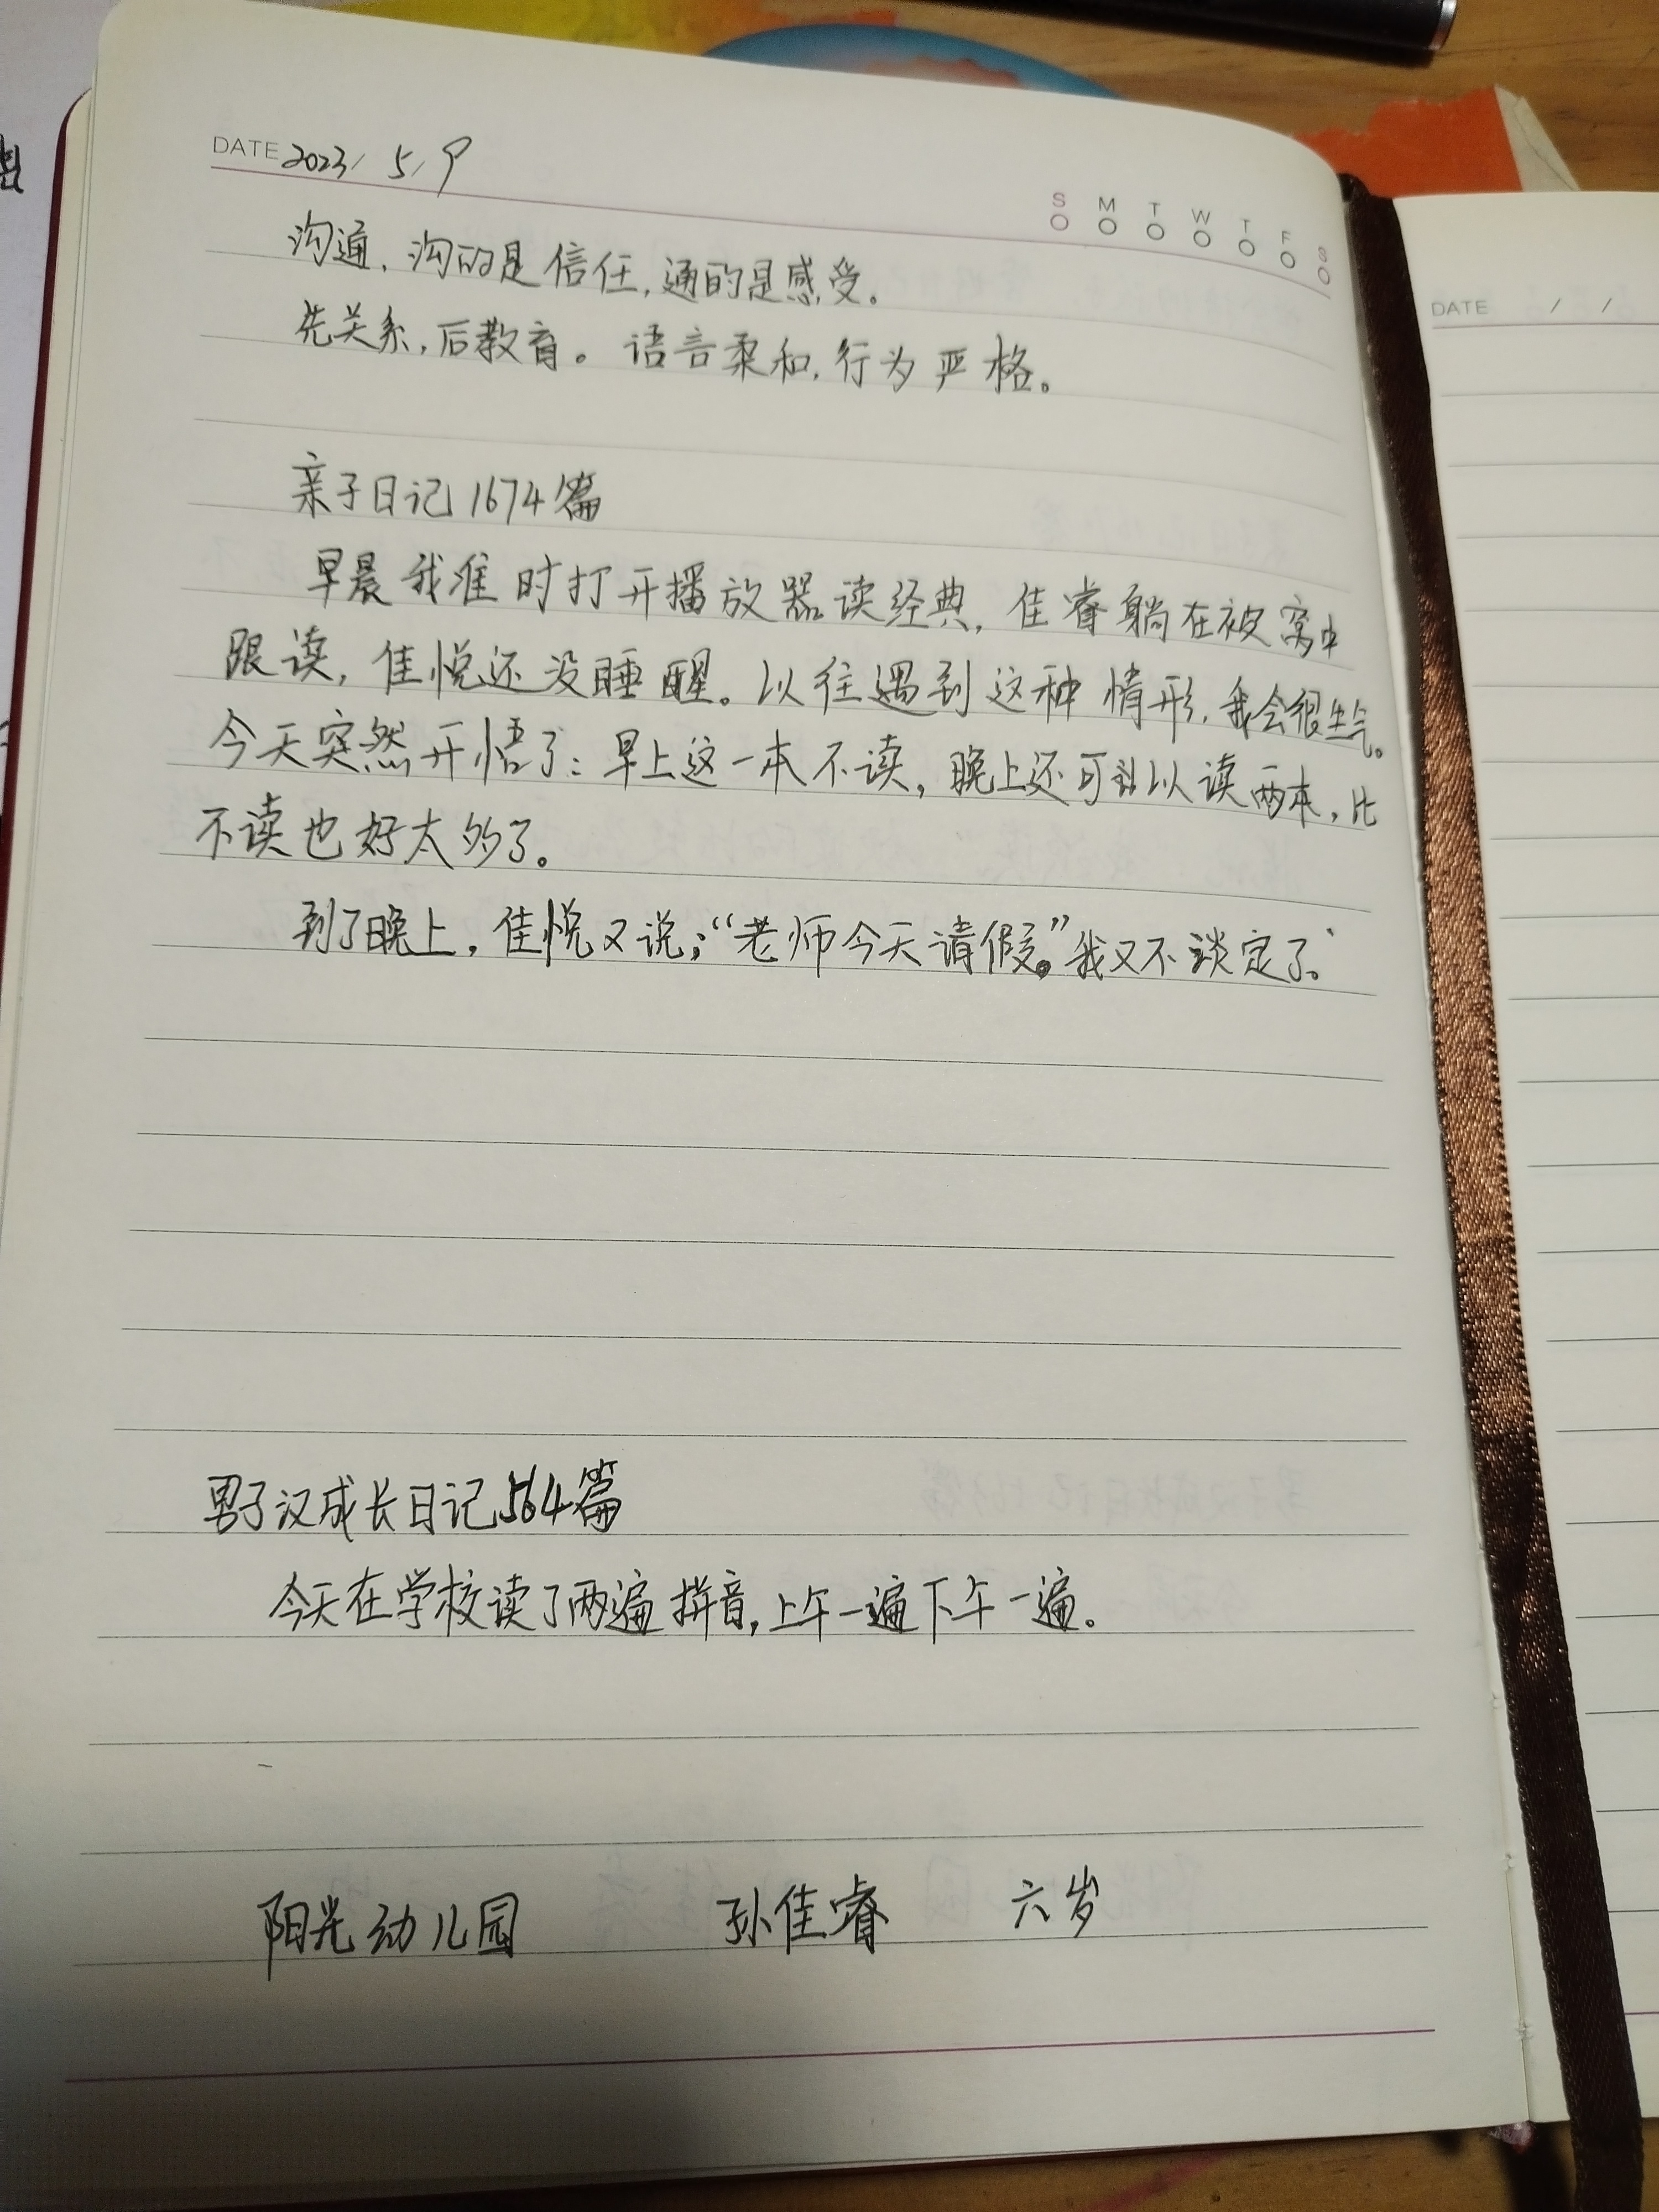 DATE 2023/ 5/ 9
S M T W T F S
沟通，沟的是信任，通的是感受。
先关系，后教育。语言柔和，行为严格。
亲子日记1674篇
早晨我准时打开播放器读经典，佳睿躺在被窝中
跟读，佳悦还没睡醒。以往遇到这种情形，我会很生气。
今天突然开悟了：早上这一本不读，晚上还可以读两本，比
不读也好太多了。
到了晚上，佳悦又说；“老师今天请假。”我又不谈定了。
男子汉成长日记564篇
今天在学校读了两遍拼音，上午一遍下午一遍。
阳光幼儿园 孙佳睿 六岁
DATE / /